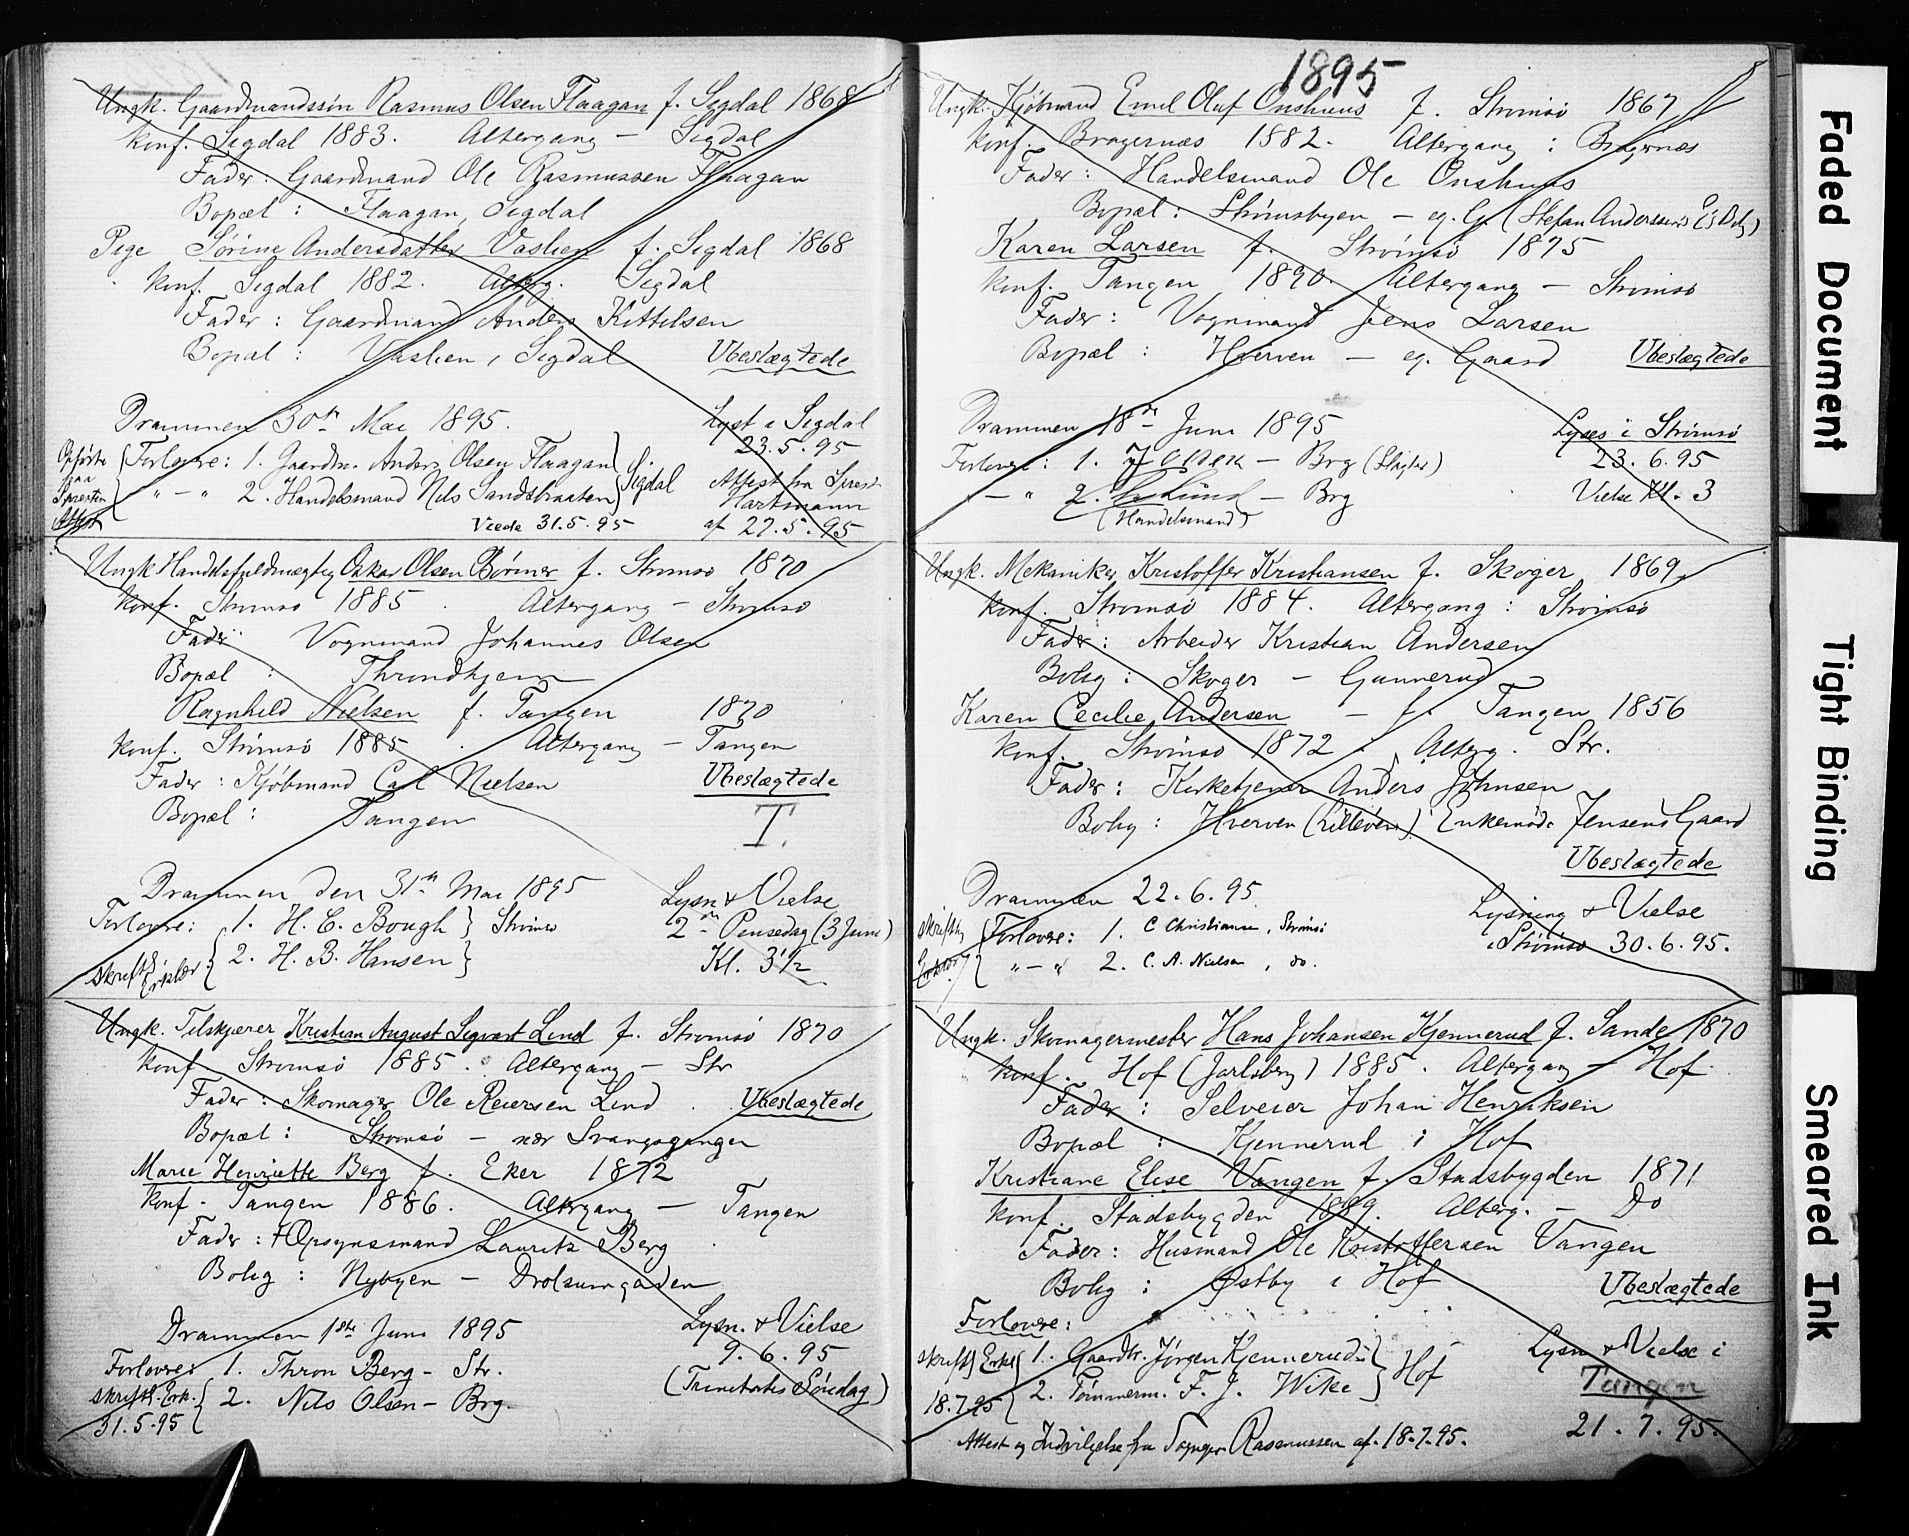 Ungk. Gaardmandssøn Rasmus Olsen Flaagan f. Sigdal 1868
Konf. Sigdal 1883. Altergang – Sigdal
Fader: Gaardmand Ole Rasmussen Flaagan
Bopæl: Flaagan, Sigdal
Pige Sørine Andersdatter Vaslien f. Sigdal 1868
Konf. Sigdal 1882. Alterg. Sigdal
Fader: Gaardmand Anders Kittelsen
Bopæl: Vaslien, Sigdal Ubeslægtede
Drammen 30te Mai 1895. Lyst i Sigdal
23.5.95
Opførte paa Attest
Forlovere: 1. Gaardm. Anders Olsen Flaagan } Sigdal
" – " 2. Handelsmand Nils Sandsbraaten
Attest fra Sprest Hartmann
Viede 31.5.95 af 27.5.95
Ungk Handelsfuldmægtig Oskar Olsen Børmer f. Strømsø 1870
Konf. Strømsø 1885. Altergang – Strømsø
Fader: Vognmand Johannes Olsen
Bopæl: Throndhjem
Ragnhild Nielsen f. Tangen 1870
Konf. Strømsø 1885. Altergang – Tangen
Fader: Kjøbmand Carl Nielsen Ubeslægtede
Bopæl: Tangen T.
Drammen den 31te Mai 1895 Lysn. & Vielse
Forlovere: 1. H. C. Bough } Strømsø 2den Pinsedag (3 Juni)
skriftl. Erklær. { 2. H. B. Hansen } Kl. 3½
Ungk. Tilskjærer Kristian August Sigvart Lind f. Strømsø 1870
Konf. Strømsø 1885. Altergang – Str
Fader: Skomager Ole Reiersen Lind. Ubeslægtede
Bopæl: Strømsø – nær Svangsgangen
Marie Henriette Berg f. Eker 1872
Konf. Tangen 1886. Altergang – Tangen
Fader: † Opsynsmand Lauritz Berg
Bolig: Nybyen – Drolsumgaden
Drammen 1ste Juni 1895 Lysn. & Vielse
9.6.95
Forlovere: 1. Thron Berg – Str. (Trinitatis Søndag)
skriftl. Erk. { 2. Nils Olsen – Brg.
31.5.95
1895
Ungk. Kjøbmand Emil Olaf Onshuus f. Strømsø 1867
Konf. Bragernæs 1882. Altergang: Bragernæs
Fader: Handelsmand Ole Onshuus
Bopæl: Strømsbyen – eg. G. (Stefan Anderssens
Karen Larsen f. Strømsø 1875
Konf. Tangen 1890. Altergang – Strømsø
Fader: Vognmand Jens Larsen
Bopæl: Hverven – eg. Gaard Ubeslægtede
Drammen 18de Juni 1895 Lyses i Strømsø
Forlovere: 1. – Brg (Slagter) 23.6.95
– " 2. Lund – Brg Vielse Kl. 3
(Handelsmand)
Ungk. Mekaniker Kristoffer Kristiansen f. Skoger 1869
Konf. Strømsø 1884. Altergang: Strømsø
Fader: Arbeider Kristian Andersen
Bolig: Skoger – Gunnerud
Karen Cecilie Andersen – f. Tangen 1856
Konf. Strømsø 1872. Alterg. Str.
Fader: Kirketjener Anders Johnsen
Bolig: Hverven (Lilleven) Enkemd. Jensens Gaard
Ubeslægtede
Drammen 22.6.95 Lysning & Vielse
skriftlig { Forlovere: 1. C Christiansen, Strømsø i Strømsø 30.6.95.
" – " 2. C. A. Nielsen, do.
Ungk. Skomagermester Hans Johansen Kjennerud f. Sande 1870
Konf. Hof (Jarlsberg) 1885. Altergang – Hof
Fader: Selveier Johan Henriksen
Bopæl: Kjennerud i Hof
Kristiane Elise Vangen f. Stadsbygden 1871
Konf. Stadsbygden 1889. Alterg. – Do
Fader: Husmand Ole Kristoffersen Vangen
Bolig: Østby i Hof Ubeslægtede
Forlovere:
skriftl. Erkl { 1. Gaardbr. Jørgen Kjennerud } Hof Lysn. & Vielse i
18.7.95 { 2. Tømmerm. F. J. Wike Tangen
Attest og Indvilgelse fra Sognepr. Rasmussen af 18.7.95. 21.7.95.
Faded Document
Tight Binding
Smeared Ink